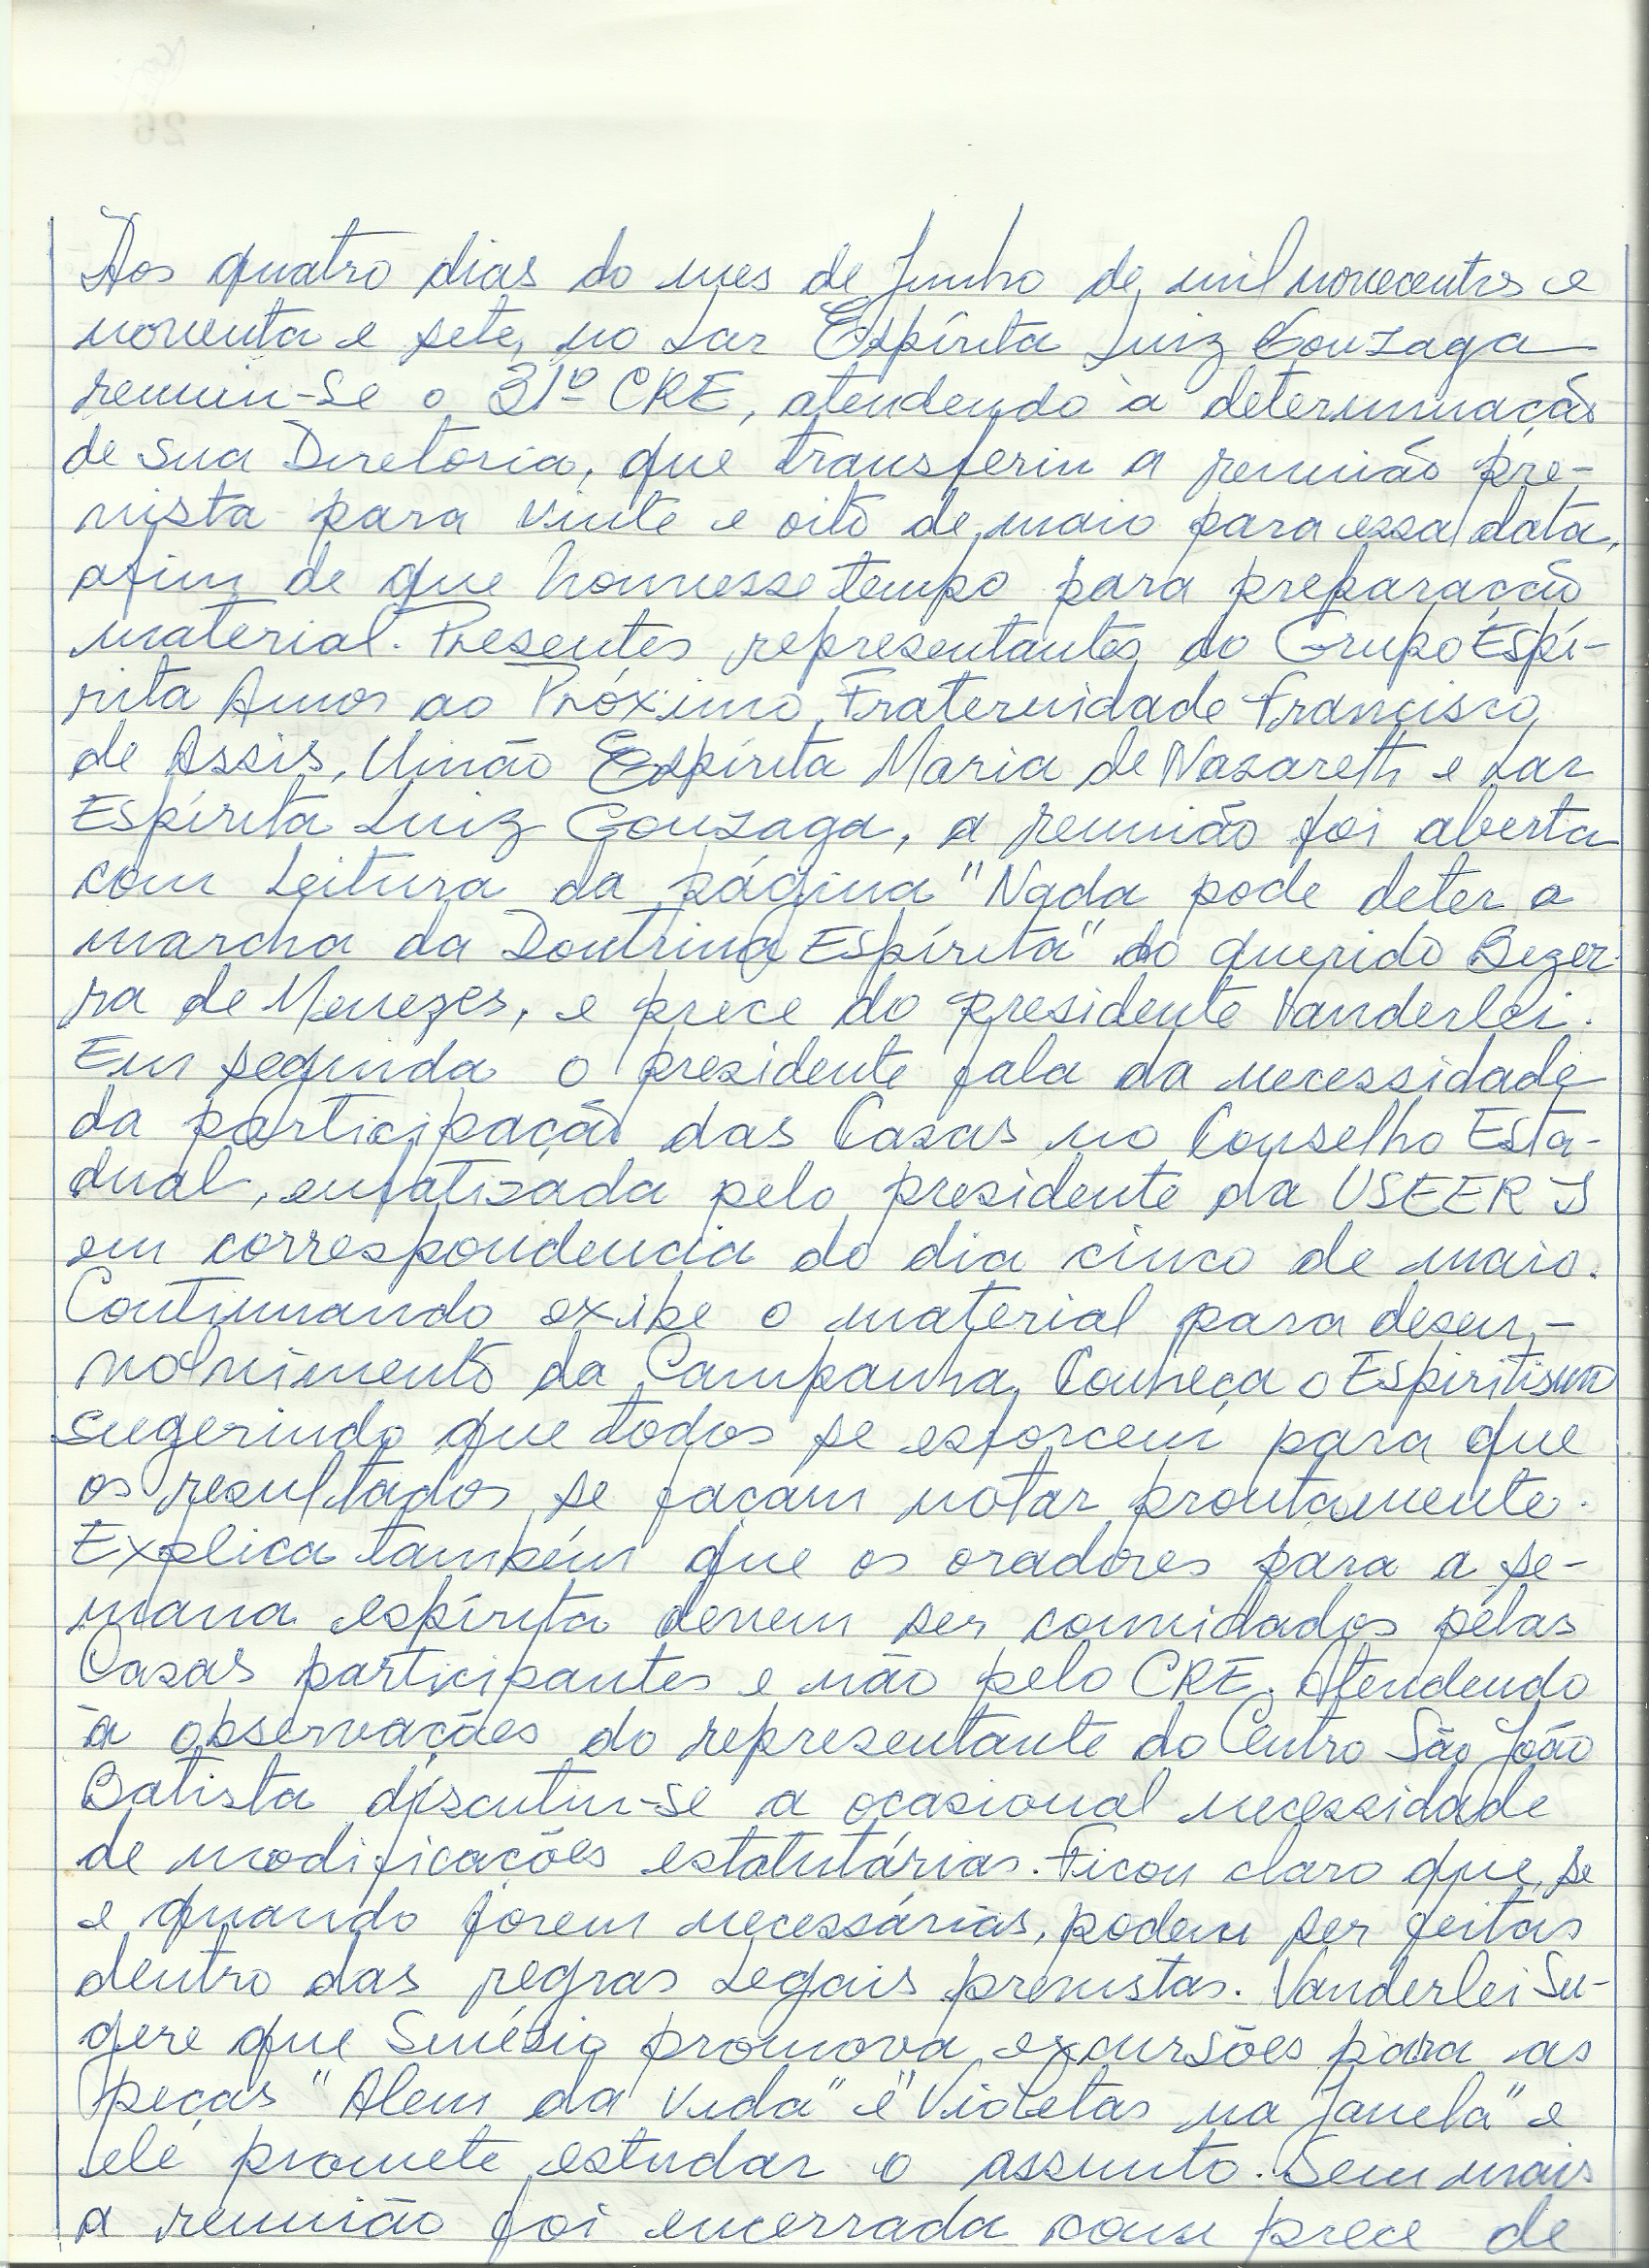 Aos quatro dias do mes de Junho de mil novecentos e
noventa e sete, no Lar Espírita Luiz Gonzaga
reuniu-se o 31º CRE, atendendo à determinação
de sua Diretoria, que transferiu a reunião pre-
vista para vinte e oito de maio para essa data,
afim de que houvesse tempo para preparação
material. Presentes representantes do Grupo Espí-
rita Amor ao Próximo, Fraternidade Francisco
de Assis, União Espírita Maria de Nazareth e Lar
Espírita Luiz Gonzaga, a reunião foi aberta
com leitura da página "Nada pode deter a
marcha da Doutrina Espírita" do querido Bezer-
ra de Menezes, e prece do presidente Vanderlei.
Em seguida o presidente fala da necessidade
da participação das Casas no Conselho Esta-
dual, enfatizada pelo presidente da USEERJ
em correspondencia do dia cinco de maio.
Continuando exibe o material para desen-
volvimento da Campanha, Conheça o Espiritismo
sugerindo que todos se esforcem para que
os resultados se façam notar prontamente.
Explica também que os oradores para a se-
mana espírita devem ser convidados pelas
Casas participantes e não pelo CRE. Atendendo
à observações do representante do Centro São João
Batista discutiu-se a ocasional necessidade
de modificações estatutárias. Ficou claro que, se
e quando forem necessárias, podem ser feitas
dentro das regras legais previstas. Vanderlei su-
gere que Sinésio promova excursões para as
peças "Alem da Vida" e "Violetas na Janela" e
ele promete estudar o assunto. Sem mais
a reunião foi encerrada com prece de